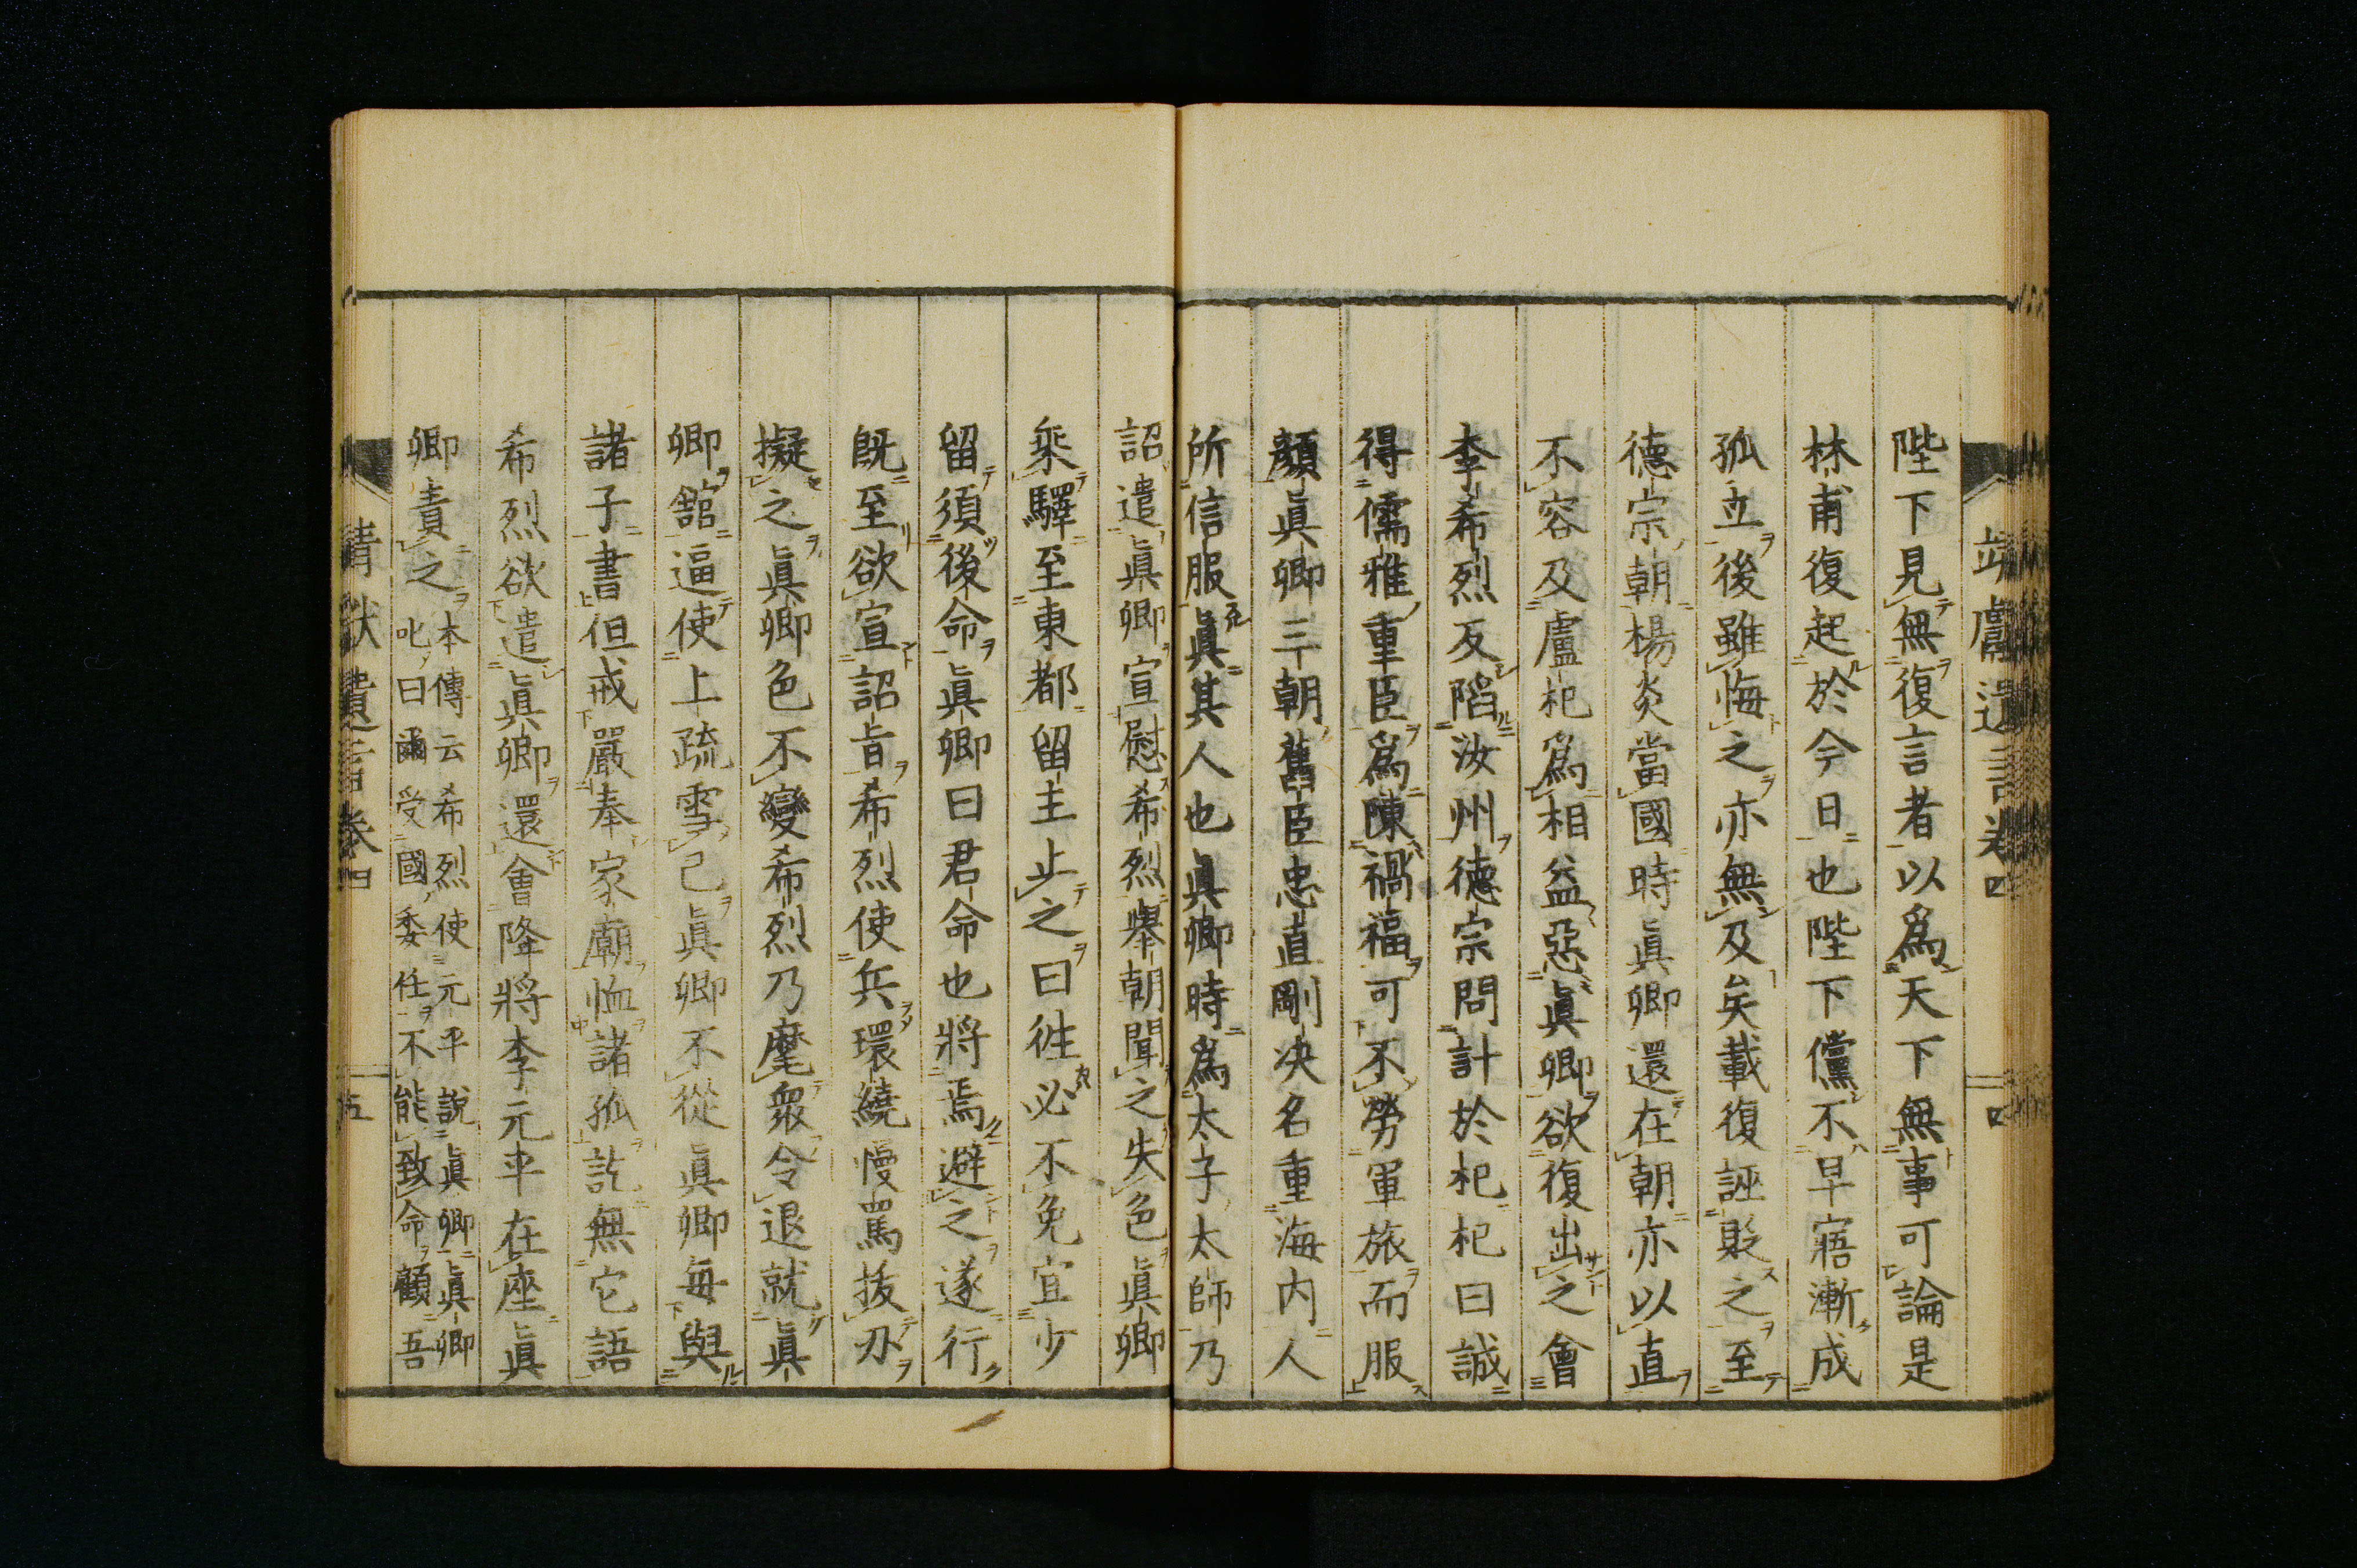 靖獻遺言卷四
四
陛下見無復言者以爲天下無事可論是
林甫復起於今日也陛下儻不早寤漸成
孤立後雖悔之亦無及矣載復誣貶之至
德宗朝楊炎當國時眞卿還在朝亦以直
不容及盧杞爲相益惡眞卿欲復出之會
李希烈反陷汝州德宗問計於杞杞曰誠
得儒雅重臣爲陳禍福可不勞軍旅而服
顏眞卿三朝舊臣忠直剛决名重海内人
所信服眞其人也眞卿時爲太子太師乃
詔遣眞卿宣慰希烈舉朝聞之失色眞卿
乘驛至東都留主止之曰徃必不免宜少
留須後命眞卿曰君命也將焉避之遂行
既至欲宣詔旨希烈使兵環繞慢罵拔刃
擬之眞卿色不變希烈乃麾衆令退就眞
卿舘逼使上疏雪己眞卿不從眞卿毎與
諸子書但戒嚴奉家廟恤諸孤訖無它語
希烈欲遣眞卿還會降將李元平在座眞
卿責之
本傳云希烈使元平說眞卿眞卿
叱曰爾受國委任不能致命顧吾
靖獻遺言卷四
五